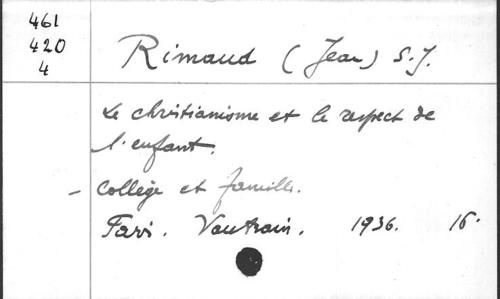 461
420
4
Rimaud (Jean) S.J.
Le christianisme et le respect de
l'enfant.
- Collège et famille.
Paris. Vautrain. 1936. 16.